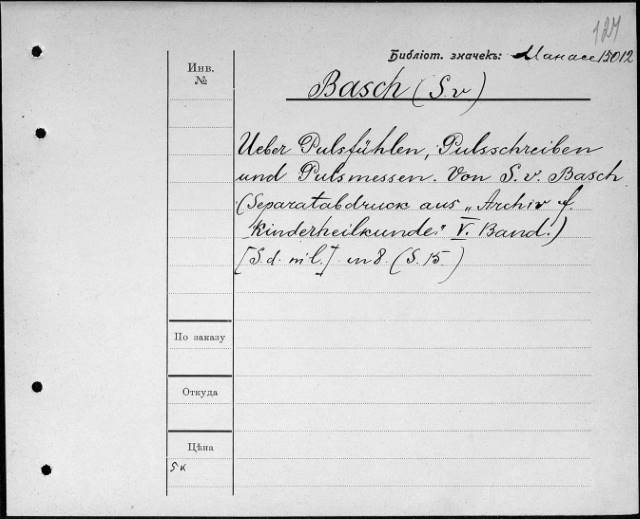 127
Библіот. значекъ: Манасе 15012
Инв.
№
Basch (S. v)
Ueber Pulsfühlen, Pulsschreiben
und Pulsmessen. Von S. v. Basch
(Separatabdruck aus „Archiv f.
Kinderheilkunde" V. Band.)
[S. d. ni l.] in 8 (S. 15.)
По заказу
Откуда
Цѣна
5 к